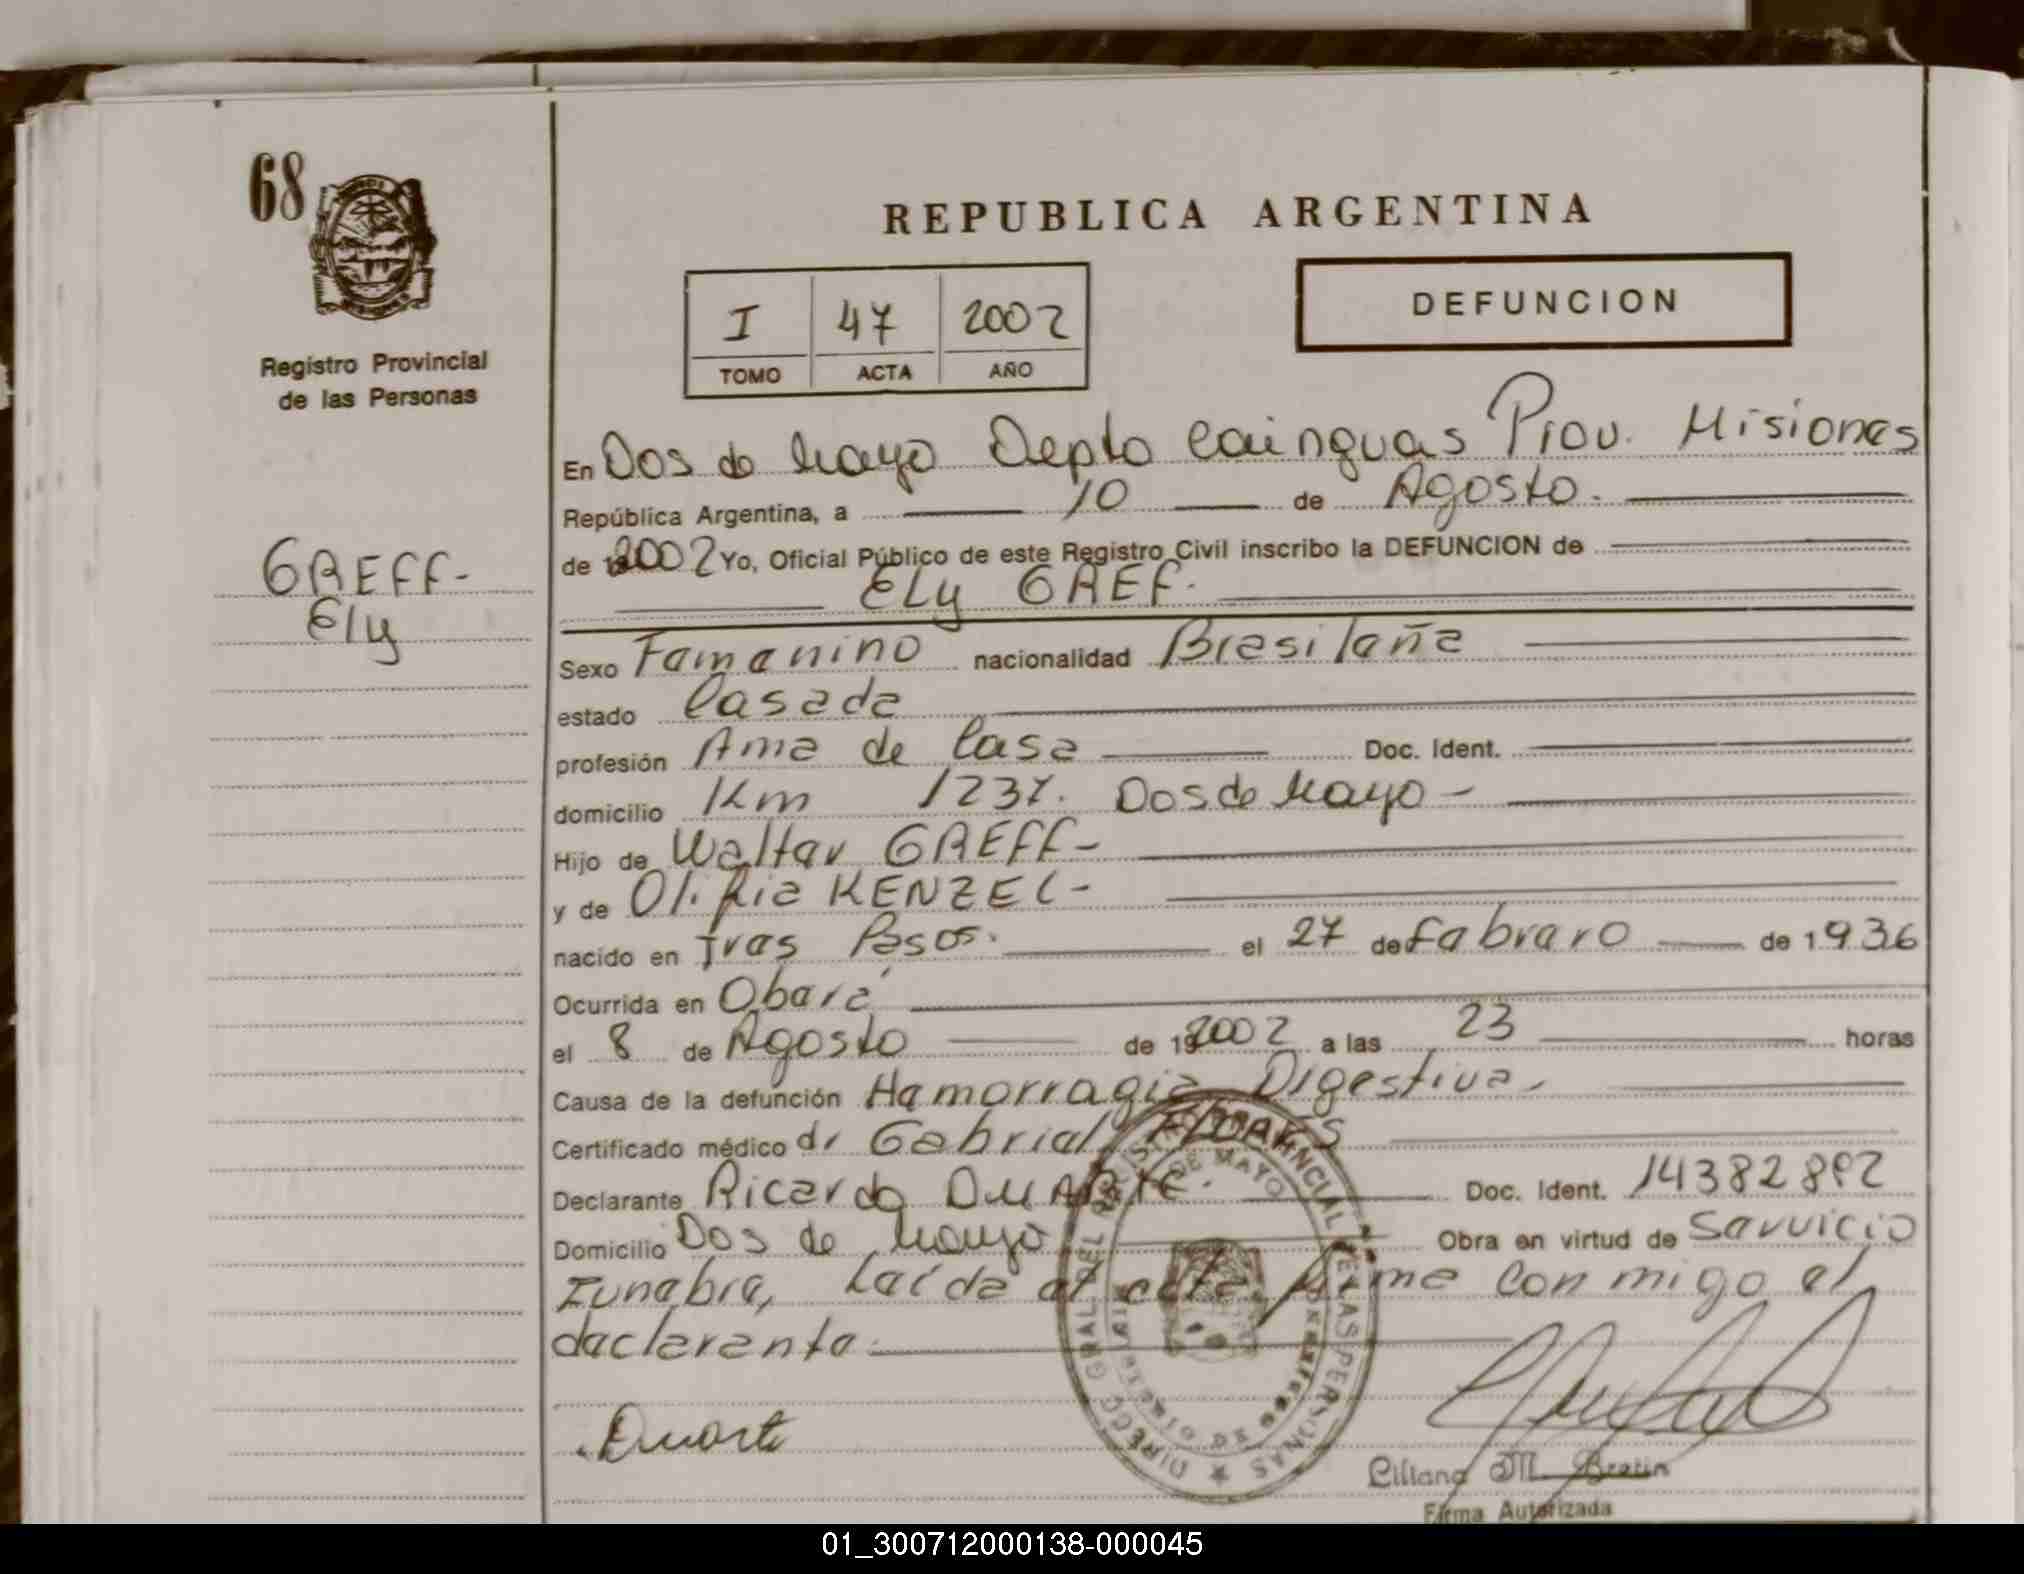 68
Registro Provincial
de las Personas
REPUBLICA ARGENTINA
I 47 2002
TOMO ACTA AÑO
DEFUNCION
En Dos de Mayo Depto Cainguas Prov. Misiones
República Argentina, a 10 de Agosto.
de 2002 Yo, Oficial Público de este Registro Civil inscribo la DEFUNCION de
Ely GREF.
GREFF-
Ely
Sexo Femenino nacionalidad Brasileña
estado Casada
profesión Ama de Casa Doc. Ident.
domicilio Km 1237. Dos de Mayo -
Hijo de Walter GREFF-
y de Olifia KENZEL-
nacido en Tres Pasos. el 27 de Febrero de 1936
Ocurrida en Oberá
el 8 de Agosto de 2002 a las 23 horas
Causa de la defunción Hemorragia Digestiva
Certificado médico dr Gabriel FLORES
Declarante Ricardo DUARTE. Doc. Ident. 14382892
Domicilio Dos de Mayo Obra en virtud de Servicio
Funebre, Leída el acta firma conmigo el
declarante.
Duarte
Liliana M. Bretin
Firma Autorizada
01_300712000138-000045